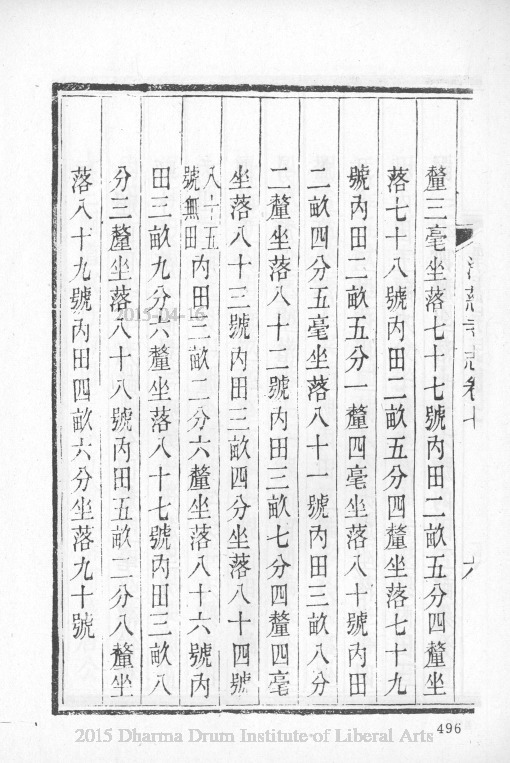 釐三毫坐落七十七號內田二畝五分四釐坐
落七十八號內田二畝五分四釐坐落七十九
號內田二畝五分一釐四毫坐落八十號內田
二畝四分五毫坐落八十一號內田三畝八分
二釐坐落八十二號內田三畝七分四釐四毫
坐落八十三號內田三畝四分坐落八十四號
八十五號無田內田二畝二分六釐坐落八十六號內
田三畝九分六釐坐落八十七號內田三畝八
分三釐坐落八十八號內田五畝二分八釐坐
落八十九號內田四畝六分坐落九十號
2015-04-16
496
2015 Dharma Drum Institute of Liberal Arts